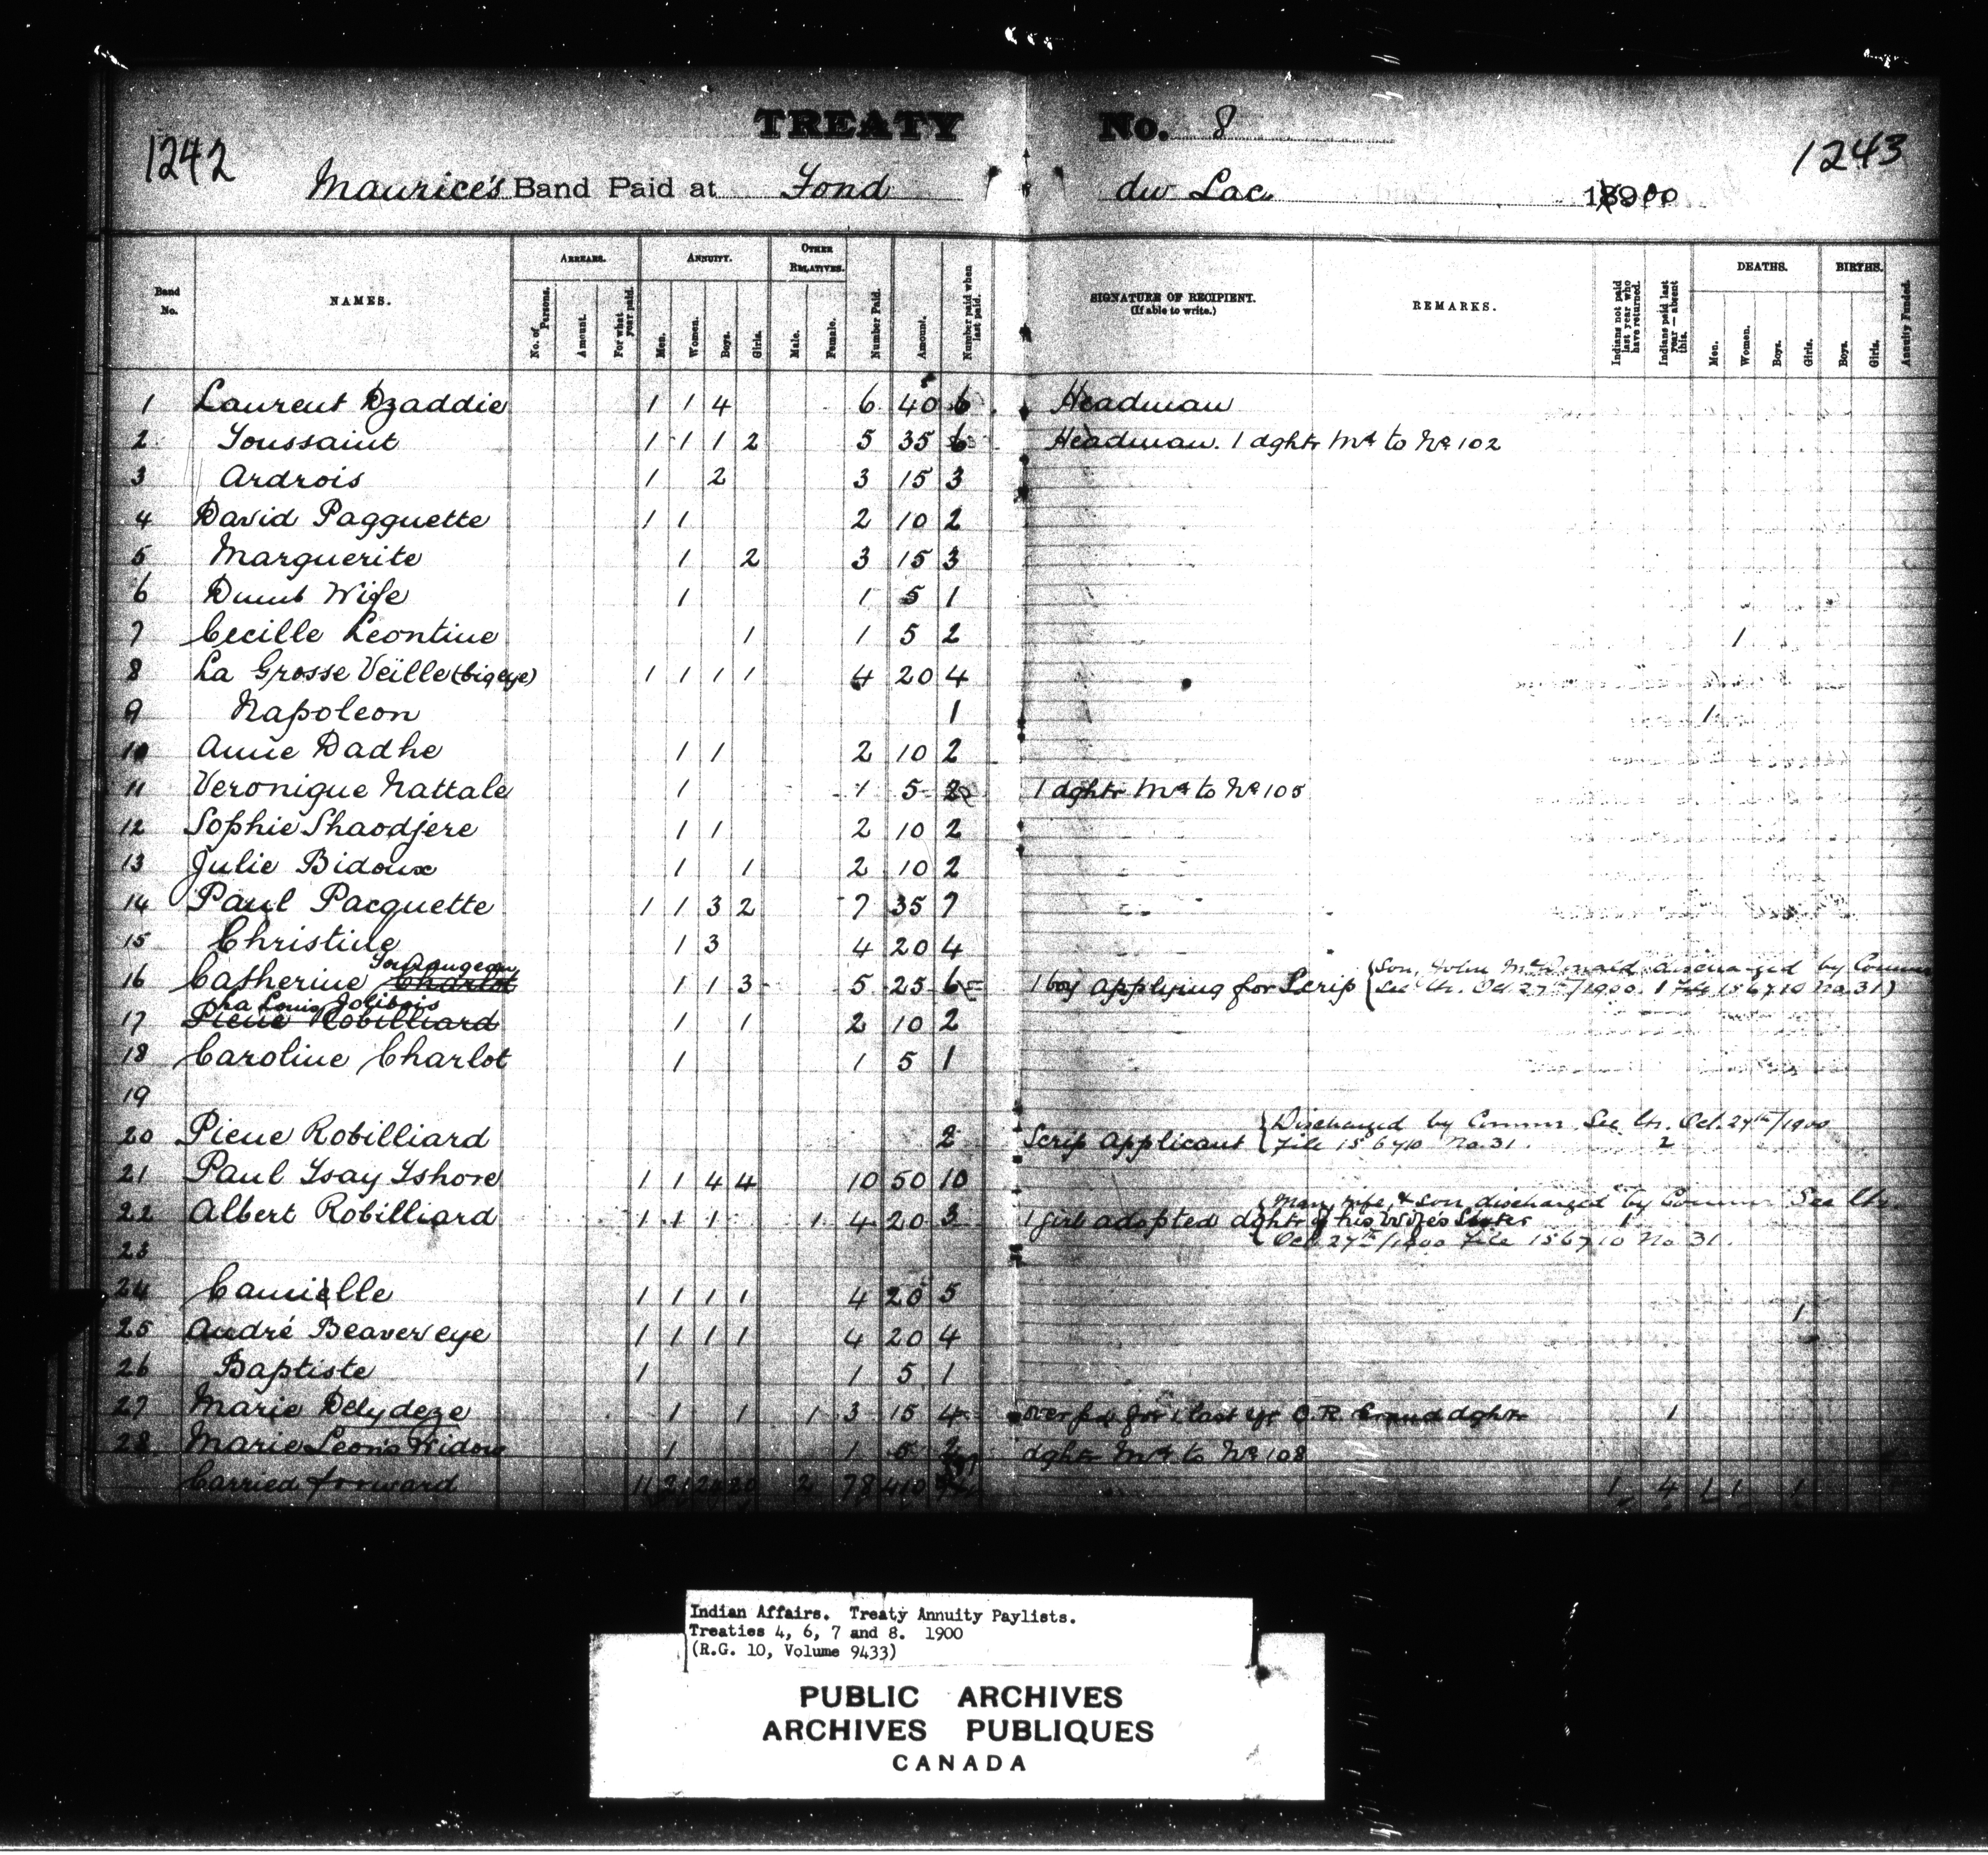 TREATY No. 8
1242 1243
Maurice's Band Paid at Fond du Lac 1900
Band No. NAMES. ARREARS. ANNUITY. OTHER RELATIVES. Number Paid. Amount. Number paid when last paid. SIGNATURE OF RECIPIENT. (If able to write.) REMARKS. Indians not paid last year who have returned. Indians paid last year — absent this. DEATHS. BIRTHS. Annuity Funded.
No. of Persons. Amount. For what year paid. Men. Women. Boys. Girls. Male. Female. Men. Women. Boys. Girls. Boys. Girls.
1 Laurent Dzaddie 1 1 4 6 40 6 Headman
2 Toussaint 1 1 1 2 5 35 6 Headman. 1 dghtr Md to No 102
3 Ardrois 1 2 3 15 3
4 David Pagguette 1 1 2 10 2
5 Marguerite 1 2 3 15 3
6 Dumb Wife 1 1 5 1
7 Cecille Leontine 1 1 5 2 1
8 La Grosse Veille (big eye) 1 1 1 1 4 20 4
9 Napoleon 1 1
10 Anne Dadhe 1 1 2 10 2
11 Veronique Nattale 1 1 5 2 1 dghtr Md to No 105
12 Sophie Shaodjere 1 1 2 10 2
13 Julie Bidoux 1 1 2 10 2
14 Paul Pacquette 1 1 3 2 7 35 7
15 Christine 1 3 4 20 4
16 Catherine Charlot 1 1 3 5 25 6 1 boy applying for Scrip (Son, John McDonald discharged by Commr
See Ltr. Oct 27th/1900 File 156710 No. 31)
Louis Jolibois
17 Pierre Robilliard 1 1 2 10 2
18 Caroline Charlot 1 1 5 1
19
20 Pierre Robilliard 2 Scrip applicant {Discharged by Commr. See Ltr. Oct. 27th/1900
File 156710 No. 31. 2
21 Paul Ysay Yshore 1 1 4 4 10 50 10
22 Albert Robilliard 1 1 1 1 4 20 3 1 girl adopted dghtr of his Wifes Sister 1
{Mary, wife, & son discharged by Commr See Ltr.
Oct. 27th/1900 File 156710 No. 31.
23
24 Camielle 1 1 1 1 4 20 5 1
25 André Beaver eye 1 1 1 1 4 20 4
26 Baptiste 1 1 5 1
27 Marie Delydeze 1 1 1 3 15 4 over pd for 1 last yr O.R. Grand dghtr 1
28 Marie Leon's Widow 1 1 5 2 dghtr Md to No 108
Carried forward 11 21 2 78 410 1 4 1 1 1
Indian Affairs. Treaty Annuity Paylists.
Treaties 4, 6, 7 and 8. 1900
(R.G. 10, Volume 9433)
PUBLIC ARCHIVES
ARCHIVES PUBLIQUES
CANADA